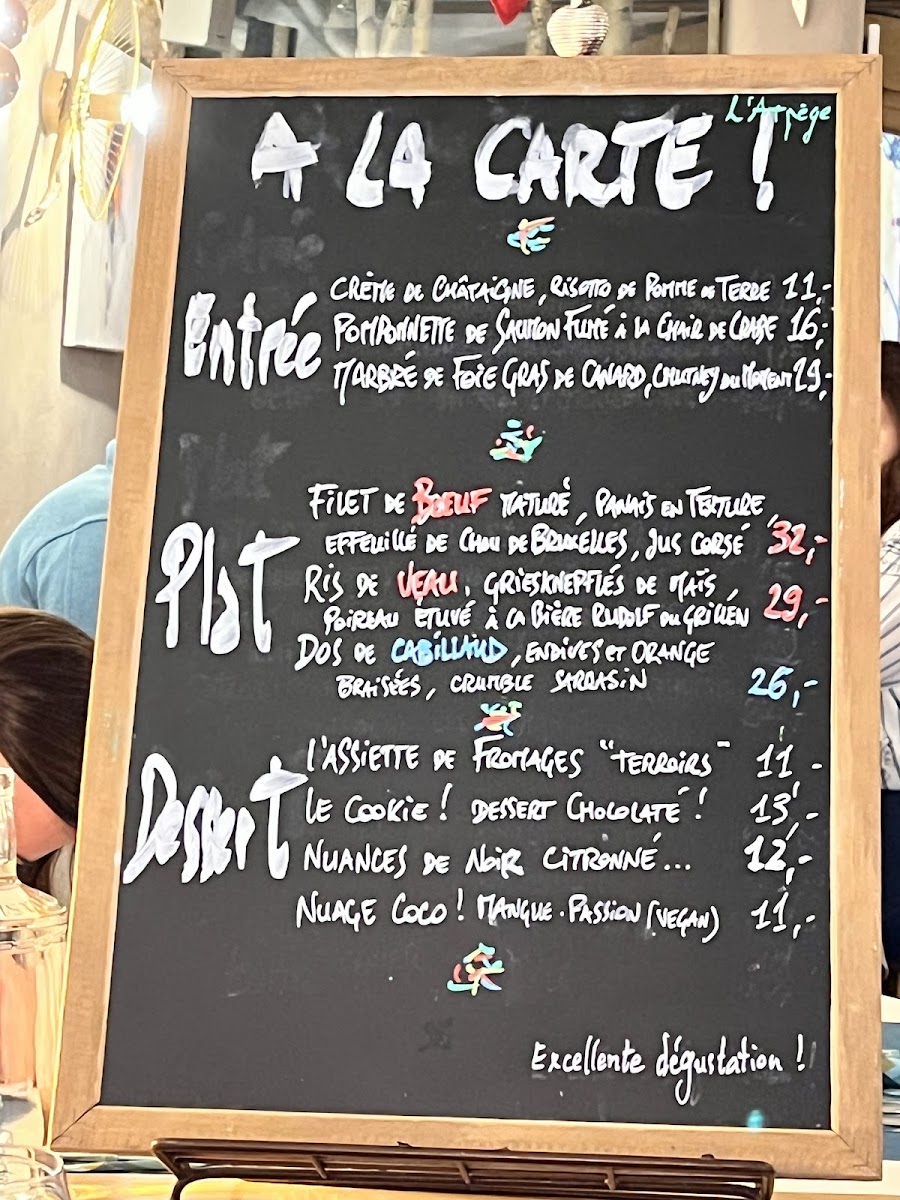 L'Arpège
A LA CARTE !
Entrée
CRÈME DE CHÂTAIGNE, RISOTTO DE POMME DE TERRE 11,-
POMPONNETTE DE SAUMON FUMÉ À LA CHAIR DE CRABE 16,-
MARBRÉ DE FOIE GRAS DE CANARD, CHUTNEY DU MOMENT 19,-
Plat
FILET DE BŒUF MATURÉ, PANAIS EN TEXTURE,
EFFEUILLÉ DE CHOU DE BRUXELLES, JUS CORSÉ 32,-
RIS DE VEAU, GRIESKNEPFLÉS DE MAÏS,
POIREAU ETUVÉ À LA BIÈRE RUDOLF DU GRILLEN 29,-
DOS DE CABILLAUD, ENDIVES ET ORANGE
BRAISÉES, CRUMBLE SARRASIN 26,-
Dessert
L'ASSIETTE DE FROMAGES "TERROIRS" 11,-
LE COOKIE ! DESSERT CHOCOLATÉ ! 13,-
NUANCES DE NOIR CITRONNÉ... 12,-
NUAGE COCO ! MANGUE-PASSION (VEGAN) 11,-
Excellente dégustation !